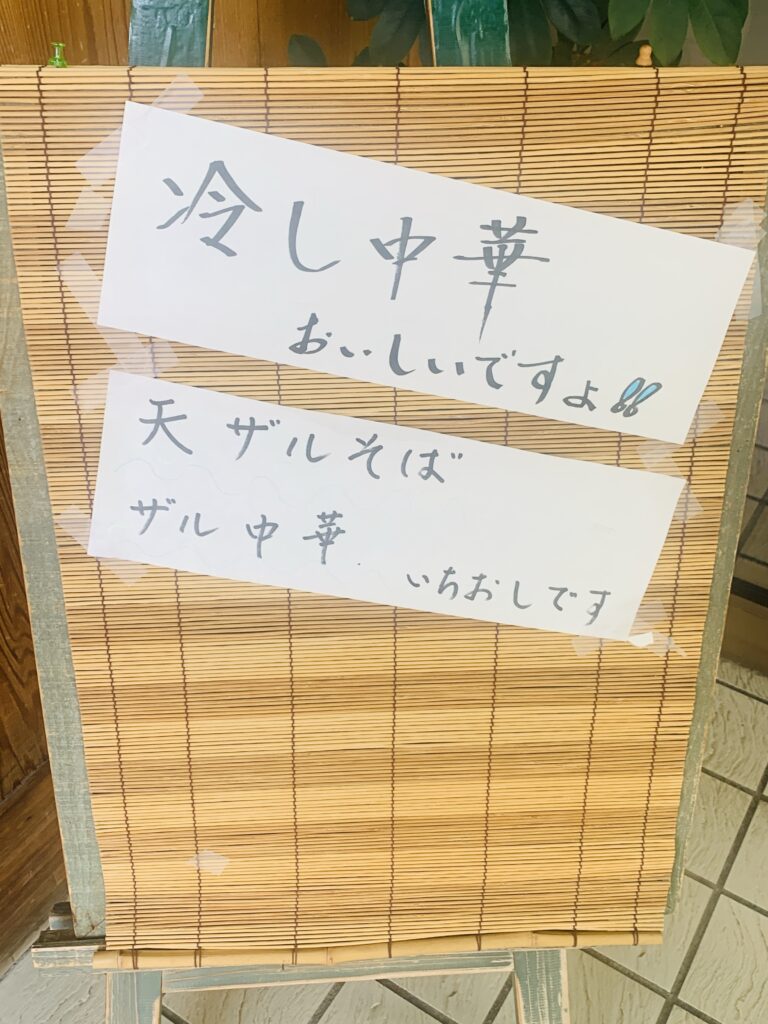 冷し中華
おいしいですよ!!
天ザルそば
ザル中華
いちおしです